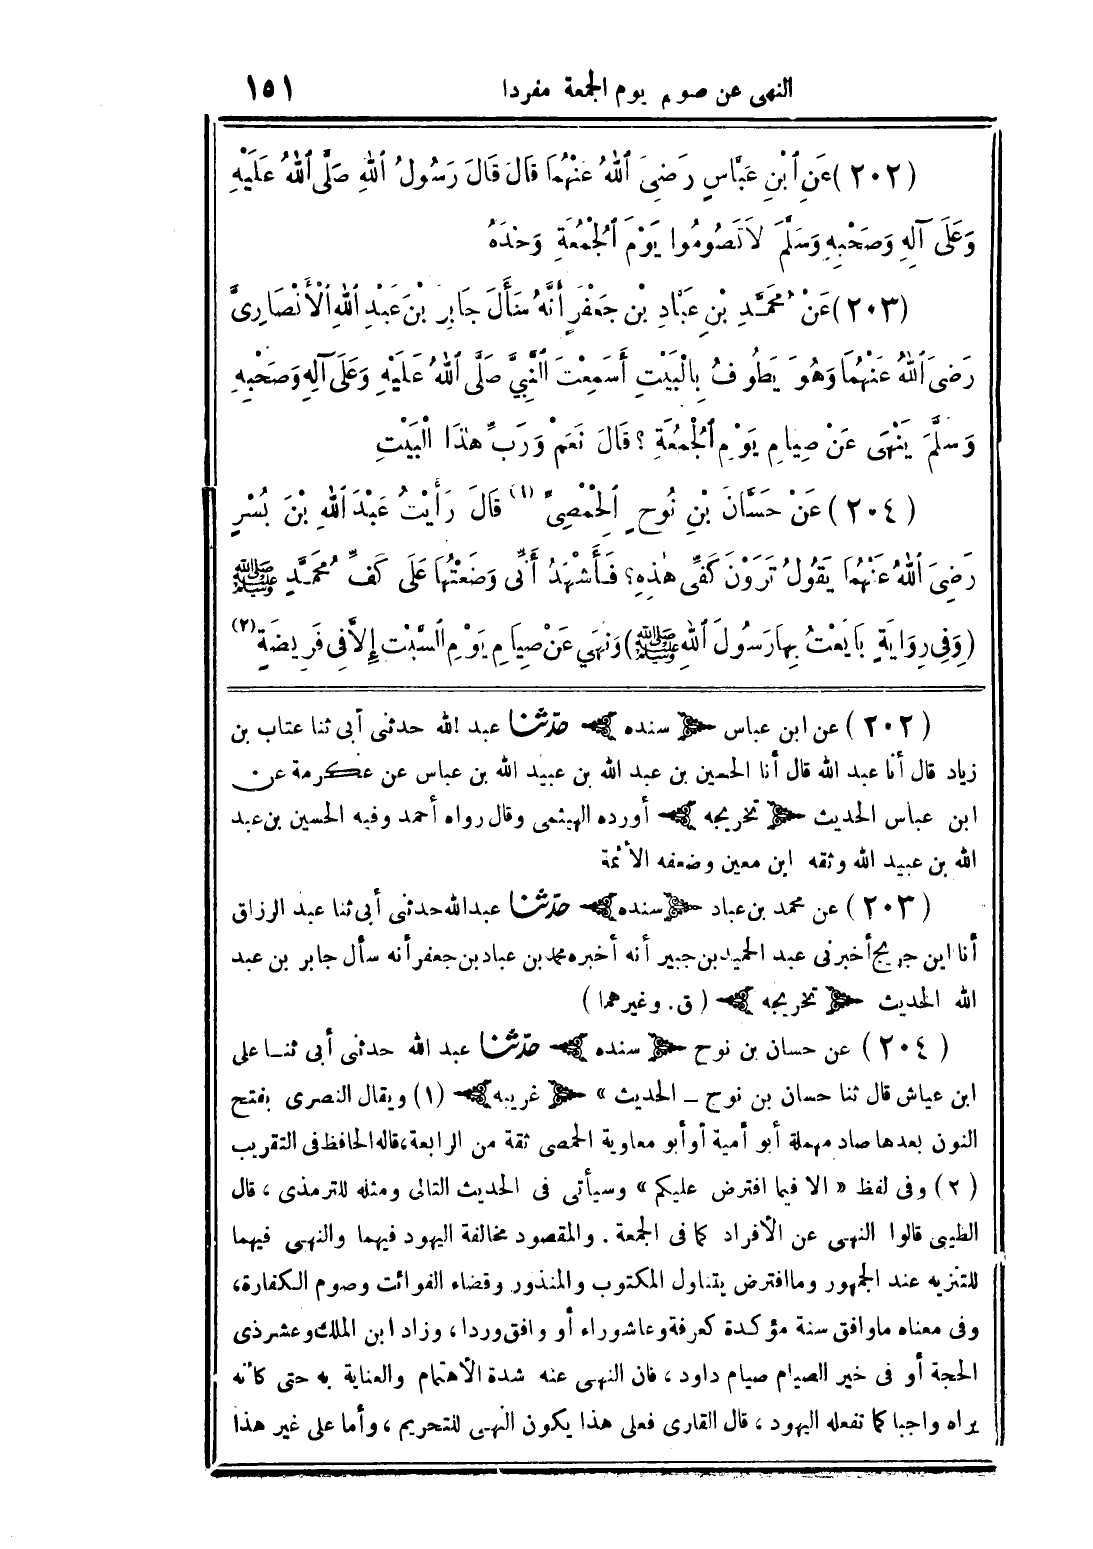 النهى عن صوم يوم الجمعة مفردا ١٥١
(٢٠٢) عَنِ ٱبْنِ عَبَّاسٍ رَضِىَ ٱللهُ عَنْهُمَا قَالَ قَالَ رَسُولُ ٱللهِ صَلَّى ٱللهُ عَلَيْهِ
وَعَلَى آلِهِ وَصَحْبِهِ وَسَلَّمَ لَا تَصُومُوا يَوْمَ ٱلْجُمْعَةِ وَحْدَهُ
(٢٠٣) عَنْ مُحَمَّدِ بْنِ عَبَّادِ بْنِ جَعْفَرٍ أَنَّهُ سَأَلَ جَابِرَ بْنَ عَبْدِ ٱللهِ ٱلْأَنْصَارِىَّ
رَضِىَ ٱللهُ عَنْهُمَا وَهُوَ يَطُوفُ بِالْبَيْتِ أَسَمِعْتَ ٱلنَّبِيَّ صَلَّى ٱللهُ عَلَيْهِ وَعَلَى آلِهِ وَصَحْبِهِ
وَسَلَّمَ يَنْهَى عَنْ صِيَامِ يَوْمِ ٱلْجُمْعَةِ ؟ قَالَ نَعَمْ وَرَبِّ هٰذَا الْبَيْتِ
(٢٠٤) عَنْ حَسَّانَ بْنِ نُوحٍ ٱلْحِمْصِىِّ (١) قَالَ رَأَيْتُ عَبْدَ ٱللهِ بْنَ بُسْرٍ
رَضِىَ ٱللهُ عَنْهُمَا يَقُولُ تَرَوْنَ كَفِّى هٰذِهِ؟ فَأَشْهَدُ أَنِّى وَضَعْتُهَا عَلَى كَفِّ مُحَمَّدٍ ﷺ
(وَفِى رِوَايَةٍ بَايَعْتُ بِهَا رَسُولَ ٱللهِ ﷺ) وَنَهَى عَنْ صِيَامِ يَوْمِ السَّبْتِ إِلَّا فِى فَرِيضَةٍ (٢)
(٢٠٢) عن ابن عباس ﴿ سنده ﴾ حدّثنا عبد الله حدثنى أبى ثنا عتاب بن
زياد قال أنا عبد الله قال أنا الحسين بن عبد الله بن عبيد الله بن عباس عن عكرمة عن
ابن عباس الحديث ﴿ تخريجه ﴾ أورده الهيثمى وقال رواه أحمد وفيه الحسين بن عبد
الله بن عبيد الله وثقه ابن معين وضعفه الأئمة
(٢٠٣) عن محمد بن عباد ﴿ سنده ﴾ حدّثنا عبدالله حدثنى أبى ثنا عبد الرزاق
أنا ابن جريج أخبرنى عبد الحميد بن جبير أنه أخبره محمد بن عباد بن جعفر أنه سأل جابر بن عبد
الله الحديث ﴿ تخريجه ﴾ ( ق. وغيرهما )
(٢٠٤) عن حسان بن نوح ﴿ سنده ﴾ حدّثنا عبد الله حدثنى أبى ثنا على
ابن عياش قال ثنا حسان بن نوح ــ الحديث » ﴿ غريبه ﴾ (١) ويقال النصرى بفتح
النون بعدها صاد مهملة أبو أمية أو أبو معاوية الحمصى ثقة من الرابعة، قاله الحافظ فى التقريب
(٢) وفى لفظ « الا فيما افترض عليكم » وسيأتى فى الحديث التالى ومثله للترمذى ، قال
الطيبى قالوا النهى عن الأفراد كما فى الجمعة . والمقصود مخالفة اليهود فيهما والنهى فيهما
للتنزيه عند الجمهور وما افترض يتناول المكتوب والمنذور وقضاء الفوائت وصوم الكفارة،
وفى معناه ماوافق سنة مؤكدة كعرفة وعاشوراء أو وافق وردا ، وزاد ابن الملك وعشر ذى
الحجة أو فى خير الصيام صيام داود ، فان النهى عنه شدة الأهتمام والعناية به حتى كأنه
يراه واجبا كما تفعله اليهود ، قال القارى فعلى هذا يكون النهى للتحريم ، وأما على غير هذا